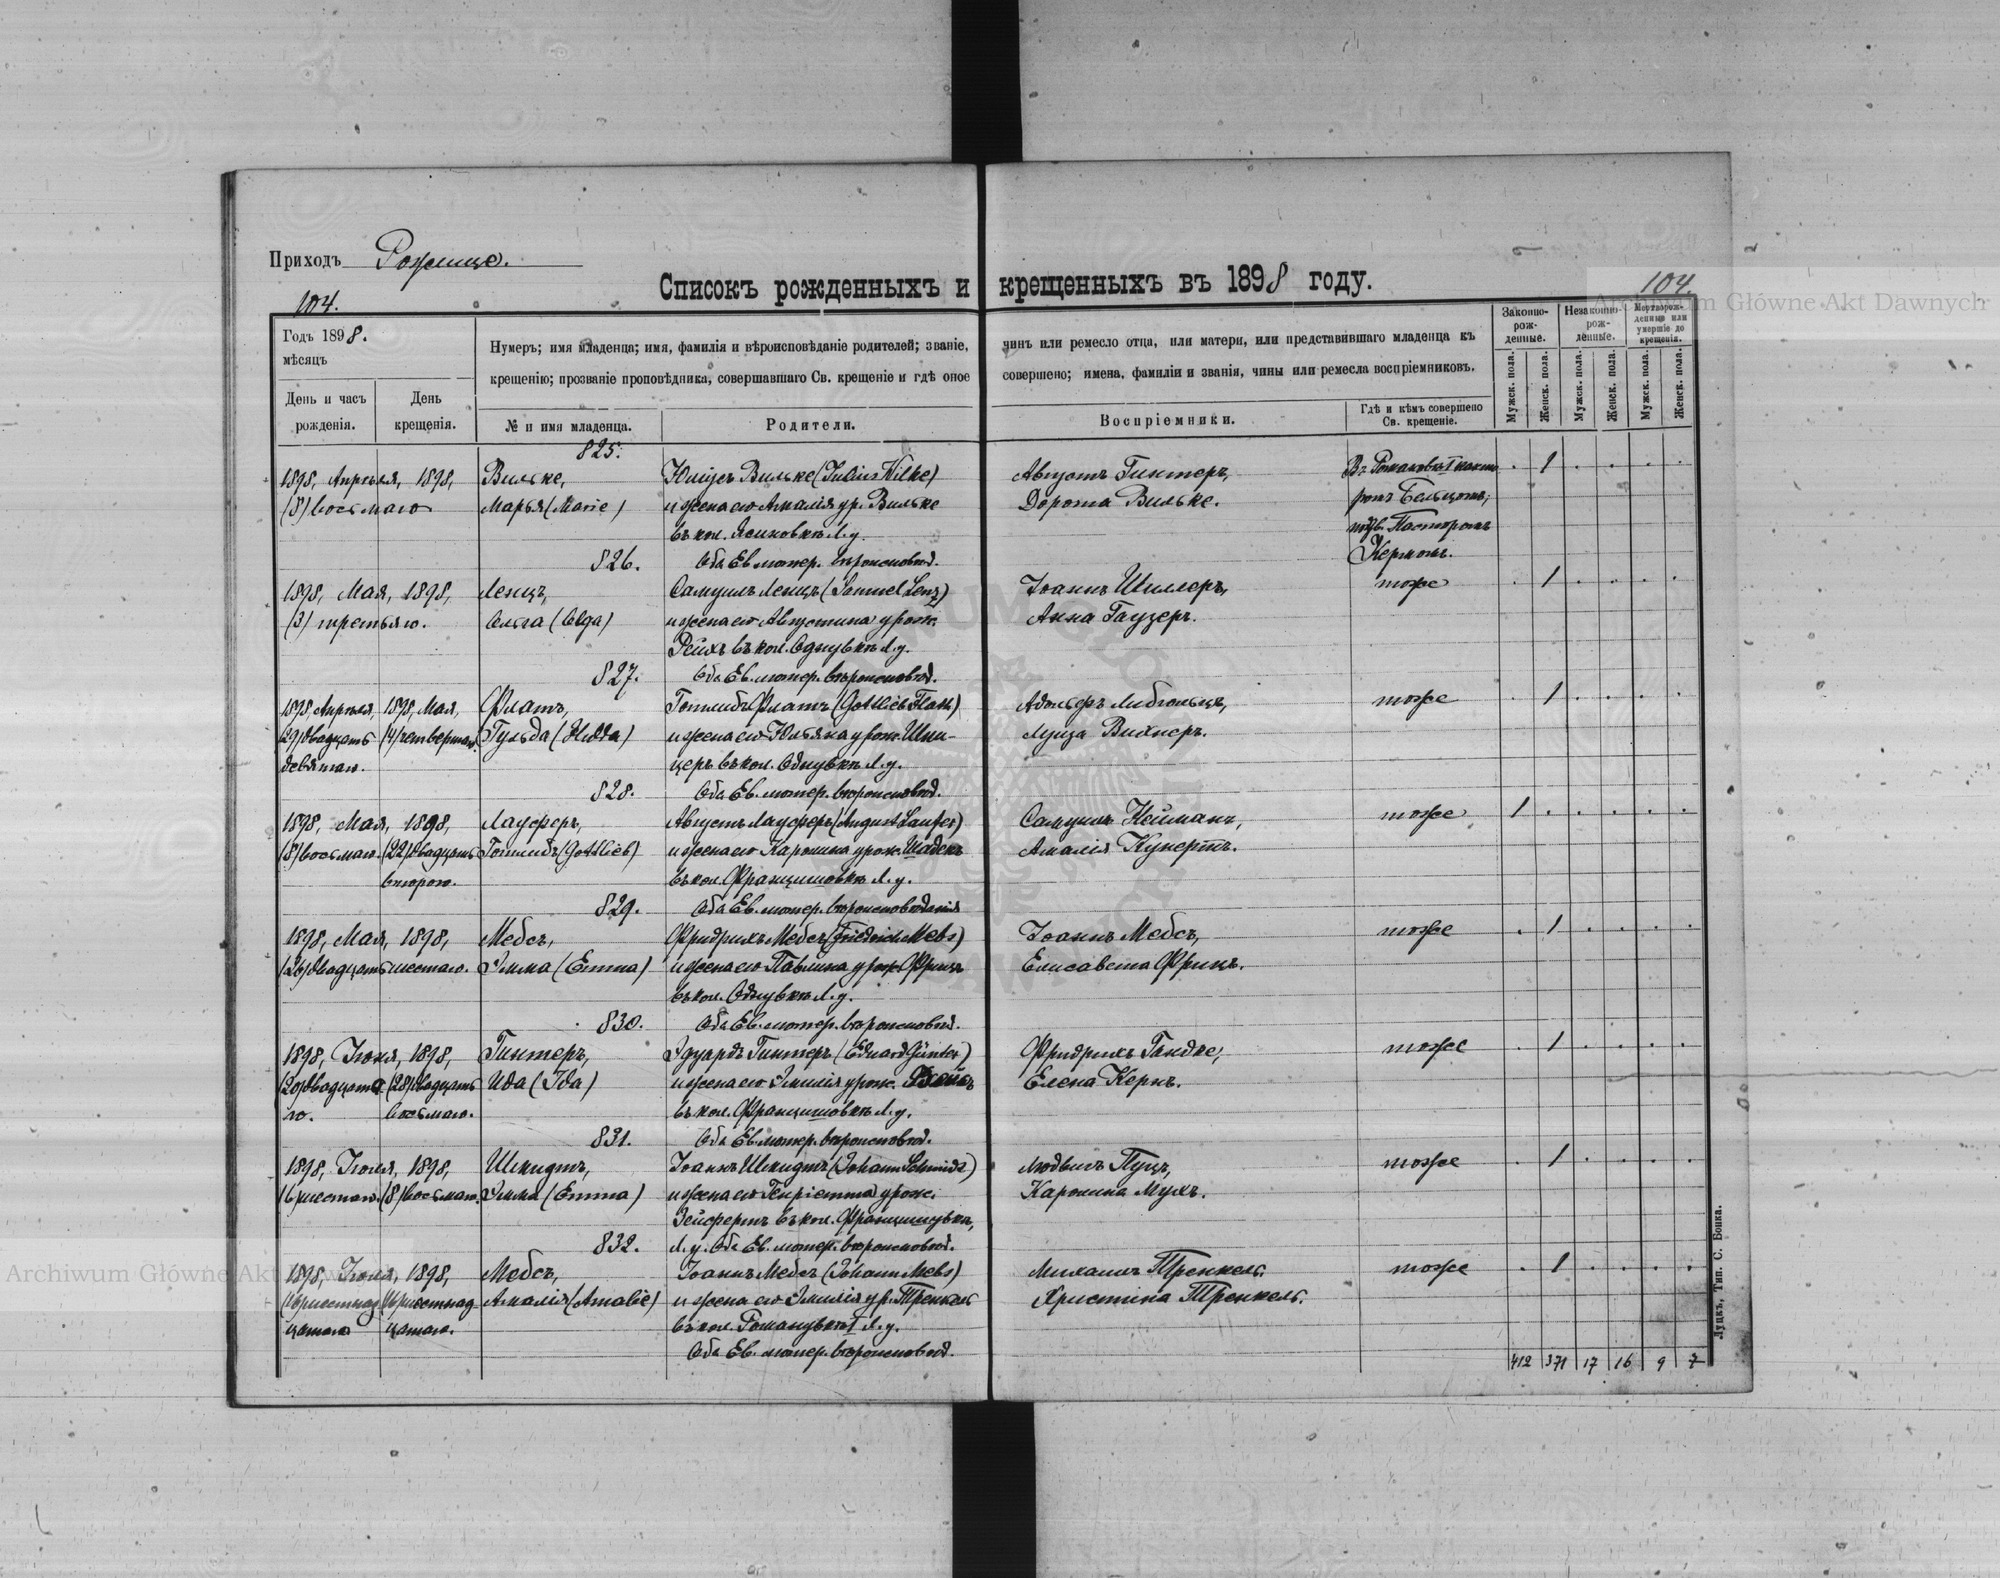 Приходъ Рожище.
104.
104.
Списокъ рожденныхъ и крещенныхъ въ 1898 году.
Archiwum Główne Akt Dawnych
Годъ 1898.
мѣсяцъ
День и часъ рожденія.
День крещенія.
Нумеръ; имя младенца; имя, фамилія и вѣроисповѣданіе родителей; званіе, чинъ или ремесло отца, или матери, или представившаго младенца къ
крещенію; прозваніе проповѣдника, совершавшаго Св. крещеніе и гдѣ оное совершено; имена, фамиліи и званія, чины или ремесла воспріемниковъ.
№ и имя младенца.
Родители.
Воспріемники.
Гдѣ и кѣмъ совершено Св. крещеніе.
Законно-рож-денные.
Незаконно-рож-денные.
Мертворож-денные или умершіе до крещенія.
Мужск. пола.
Женск. пола.
Мужск. пола.
Женск. пола.
Мужск. пола.
Женск. пола.
825.
1898, Апрѣля, 1898, Вильке, Юліусъ Вильке (Julius Wilke) Августъ Гинтеръ, 1
(8) восьмаго Марья (Marie) и жена его Амалія ур. Вильке Дорота Вильке.
въ кол. Ясиновкѣ Л. у. подв. Пасторомъ
Оба Ев. лютер. вѣроисповѣд. Кермомъ.
826.
1898, Мая, 1898, Ленцъ, Самуилъ Ленцъ (Samuel Lenz) Іоаннъ Шиллеръ, тоже 1
(3) третьяго. Ольга (Olga) и жена его Августина урож. Анна Гаузеръ.
Рейхъ въ кол. Однувкѣ Л. у.
Оба Ев. лютер. вѣроисповѣд.
827.
1898, Апрѣля, 1898, Мая, Флатъ, Готлибъ Флатъ (Gottlieb Flatt) Адольфъ Либгольцъ, тоже 1
(29) двадцать (4) четвертаго. Гульда (Hulda) и жена его Юльяна урож. Шни- Луиза Вихнеръ.
девятаго. церъ въ кол. Однувкѣ Л. у.
Оба Ев. лютер. вѣроисповѣд.
828.
1898, Мая, 1898, Лауферъ, Августъ Лауферъ (August Laufer) Самуилъ Нейманъ, тоже 1
(8) восьмаго. (22) двадцать Готлибъ (Gottlieb) и жена его Каролина урож. Шадекъ Амалія Кунертъ.
втораго. въ кол. Францишовкѣ Л. у.
Оба Ев. лютер. вѣроисповѣданія
829.
1898, Мая, 1898, Мебсъ, Фридрихъ Мебсъ (Friedrich Mebs) Іоаннъ Мебсъ, тоже 1
(26) двадцать шестаго. Эмма (Emma) и жена его Павлина урож. Фрицъ Елисавета Фрицъ.
въ кол. Однувкѣ Л. у.
Оба Ев. лютер. вѣроисповѣд.
830.
1898, Іюня, 1898, Гинтеръ, Эдуардъ Гинтеръ (Eduard Günter) Фридрихъ Гандке, тоже 1
(20) двадцата (28) двадцать Ида (Ida) и жена его Эмилія урож. Елена Кернъ.
го. восьмаго. въ кол. Францишовкѣ Л. у.
Оба Ев. лютер. вѣроисповѣд.
831.
1898, Іюля, 1898, Шмидтъ, Іоаннъ Шмидтъ (Johann Schmidt) Людвигъ Пуцъ, тоже 1
(6) шестаго. (8) восьмаго. Эмма (Emma) и жена его Генріетта урож. Каролина Мухъ.
Зейфертъ въ кол. Францишувкѣ,
Л. у. Оба Ев. лютер. вѣроисповѣд.
832.
1898, Іюля, 1898, Мебсъ, Іоаннъ Мебсъ (Johann Mebs) Михаилъ Тренкель. тоже 1
(16) шестнад (16) шестнад Амалія (Amalie) и жена его Эмилія ур. Тренкель Христина Тренкель.
цатаго цатаго. въ кол. Романувкѣ I Л. у.
Оба Ев. лютер. вѣроисповѣд.
412 371 17 16 9 7
Луцкъ, Тип. С. Бонка.
Archiwum Główne Akt Dawnych